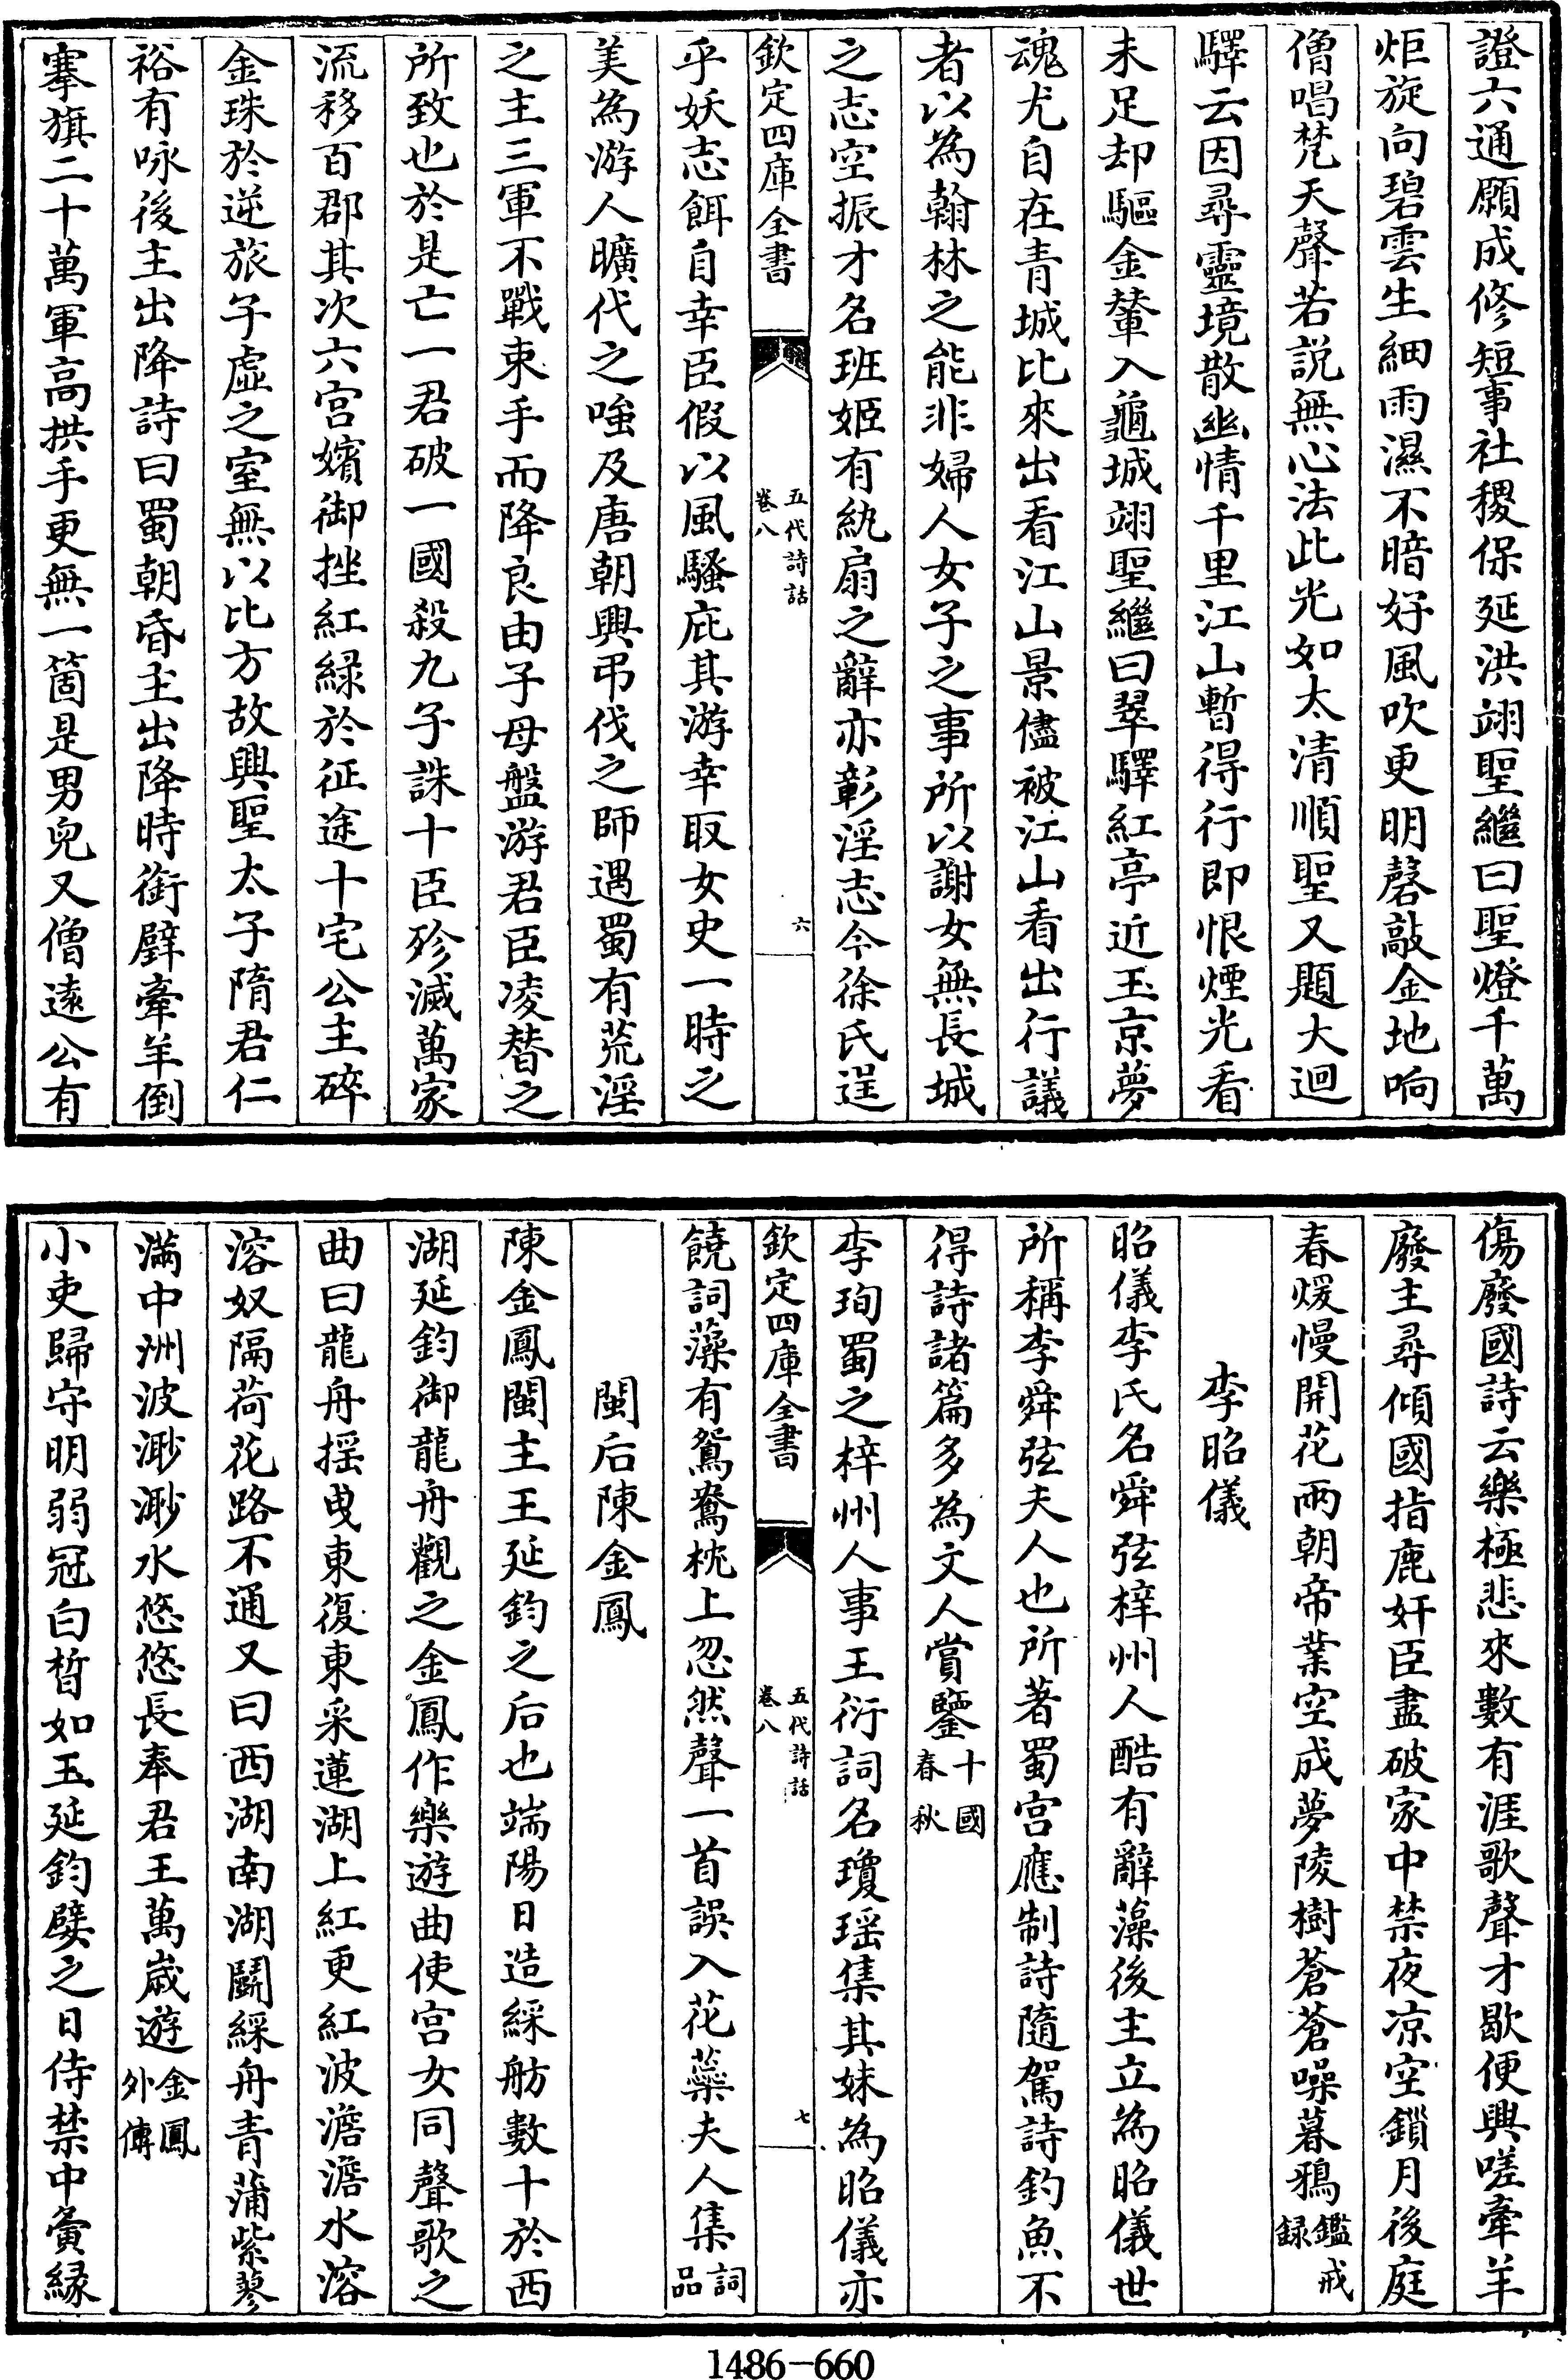 證六通願成修短事社稷保延洪翊聖繼曰聖燈千萬
炬旋向碧雲生細雨濕不暗好風吹更明磬敲金地响
僧唱梵天聲若説無心法此光如太清順聖又題大迴
驛云因尋靈境散幽情千里江山暫得行即恨煙光看
未足却驅金輦入龜城翊聖繼曰翠驛紅亭近玉京夢
魂尤自在青城比來出看江山景儘被江山看出行議
者以為翰林之能非婦人女子之事所以謝女無長城
之志空振才名班姬有紈扇之辭亦彰淫志今徐氏逞
欽定四庫全書
五代詩話
卷八
六
乎妖志餌自幸臣假以風騷庇其游幸取女史一時之
美為游人曠代之嗤及唐朝興弔伐之師遇蜀有荒淫
之主三軍不戰束手而降良由子母盤游君臣凌替之
所致也於是亡一君破一國殺九子誅十臣殄滅萬家
流移百郡其次六宫嬪御挫紅緑於征途十宅公主碎
金珠於逆旅子虚之室無以比方故興聖太子隋君仁
裕有咏後主出降詩曰蜀朝昏主出降時銜璧牽羊倒
搴旗二十萬軍高拱手更無一箇是男兒又僧遠公有
傷廢國詩云樂極悲來數有涯歌聲才歇便興嗟牽羊
廢主尋傾國指鹿奸臣盡破家中禁夜凉空鎻月後庭
春煖慢開花兩朝帝業空成夢陵樹蒼蒼噪暮鴉鑑戒
録
李昭儀
昭儀李氏名舜弦梓州人酷有辭藻後主立為昭儀世
所稱李舜弦夫人也所著蜀宫應制詩隨駕詩釣魚不
得詩諸篇多為文人賞鑒十國
春秋
李珣蜀之梓州人事王衍詞名瓊瑶集其妹為昭儀亦
欽定四庫全書
五代詩話
卷八
七
饒詞藻有鴛鴦枕上忽然聲一首誤入花蘂夫人集詞
品
閩后陳金鳳
陳金鳳閩主王延鈞之后也端陽日造綵舫數十於西
湖延鈞御龍舟觀之金鳳作樂遊曲使宫女同聲歌之
曲曰龍舟摇曳東復東采蓮湖上紅更紅波澹澹水溶
溶奴隔荷花路不通又曰西湖南湖鬭綵舟青蒲紫蓼
滿中洲波渺渺水悠悠長奉君王萬歲遊金鳳
外傳
小吏歸守明弱冠白皙如玉延鈞嬖之日侍禁中夤緣
1486-660